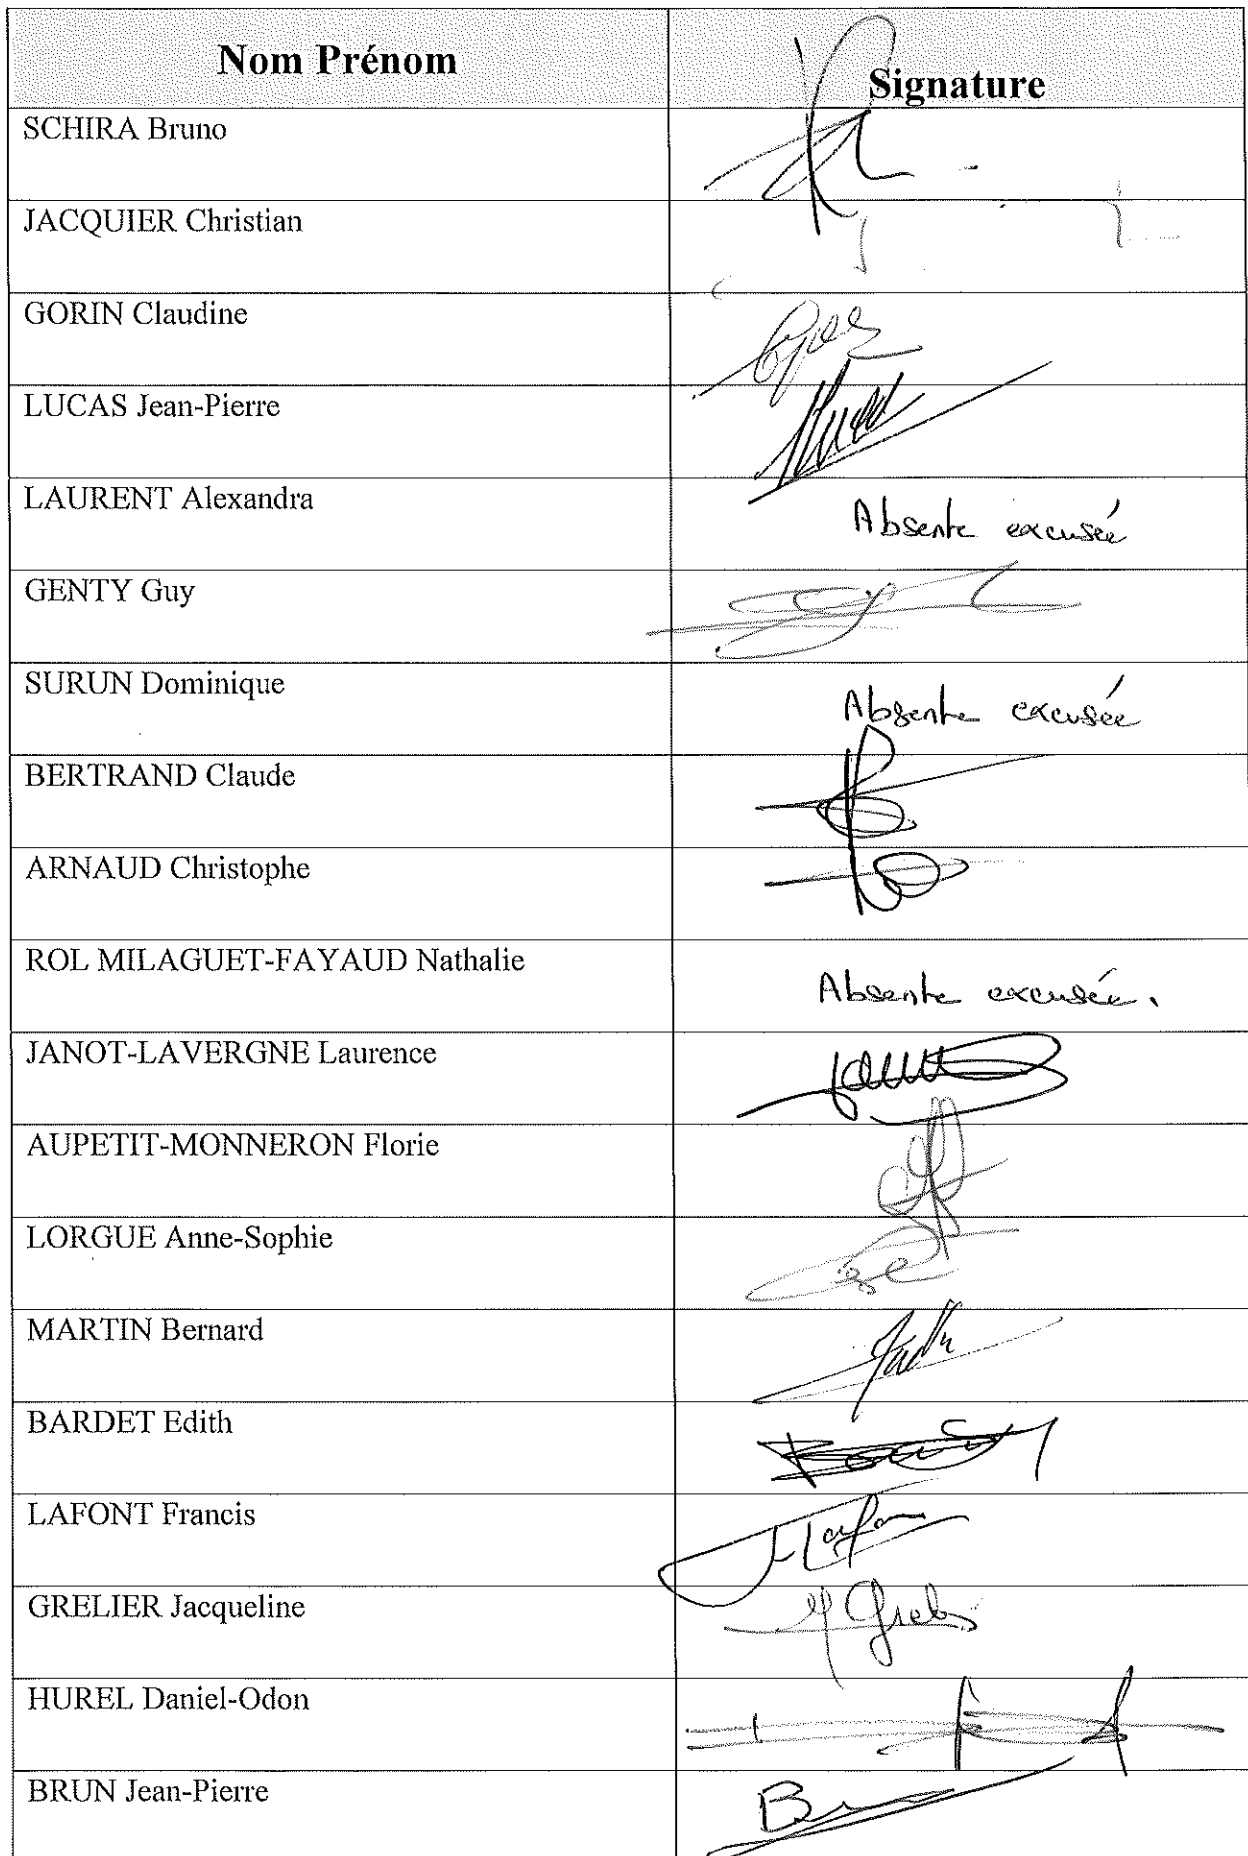 Nom Prénom Signature
SCHIRA Bruno
JACQUIER Christian
GORIN Claudine
LUCAS Jean-Pierre
LAURENT Alexandra Absente excusée
GENTY Guy
SURUN Dominique Absente excusée
BERTRAND Claude
ARNAUD Christophe
ROL MILAGUET-FAYAUD Nathalie Absente excusée.
JANOT-LAVERGNE Laurence
AUPETIT-MONNERON Florie
LORGUE Anne-Sophie
MARTIN Bernard
BARDET Edith
LAFONT Francis
GRELIER Jacqueline
HUREL Daniel-Odon
BRUN Jean-Pierre